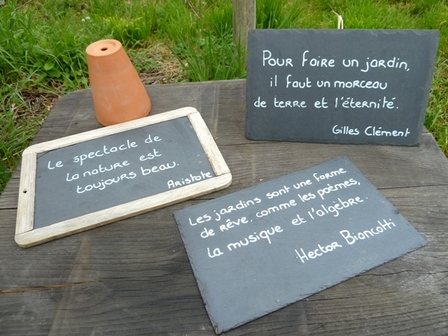 Pour faire un jardin,
il faut un morceau
de terre et l'éternité.
Gilles Clément
Le spectacle de
la nature est
toujours beau.
Aristote
Les jardins sont une forme
de rêve, comme les poèmes,
la musique et l'algèbre.
Hector Biancotti